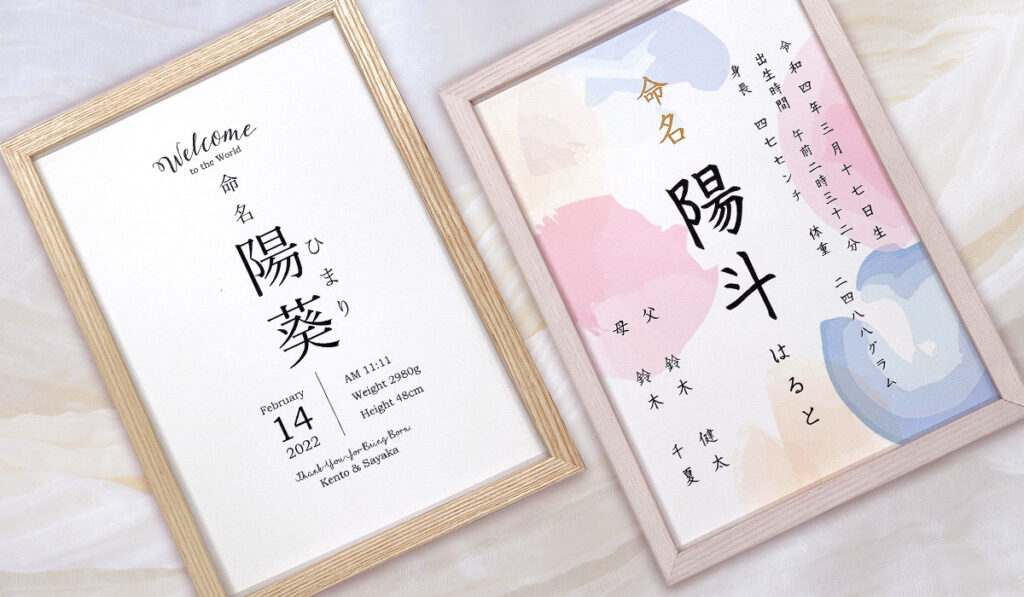 Welcome
to the World
命名
陽葵
ひまり
February
14
2022
AM 11:11
Weight 2980g
Height 48cm
Thank You for Being Born
Kento & Sayaka
令和四年三月十七日生
出生時間 午前二時三十二分
身長 四七センチ 体重 二四八八グラム
命名
陽斗
はると
父 鈴木 健太
母 鈴木 千夏